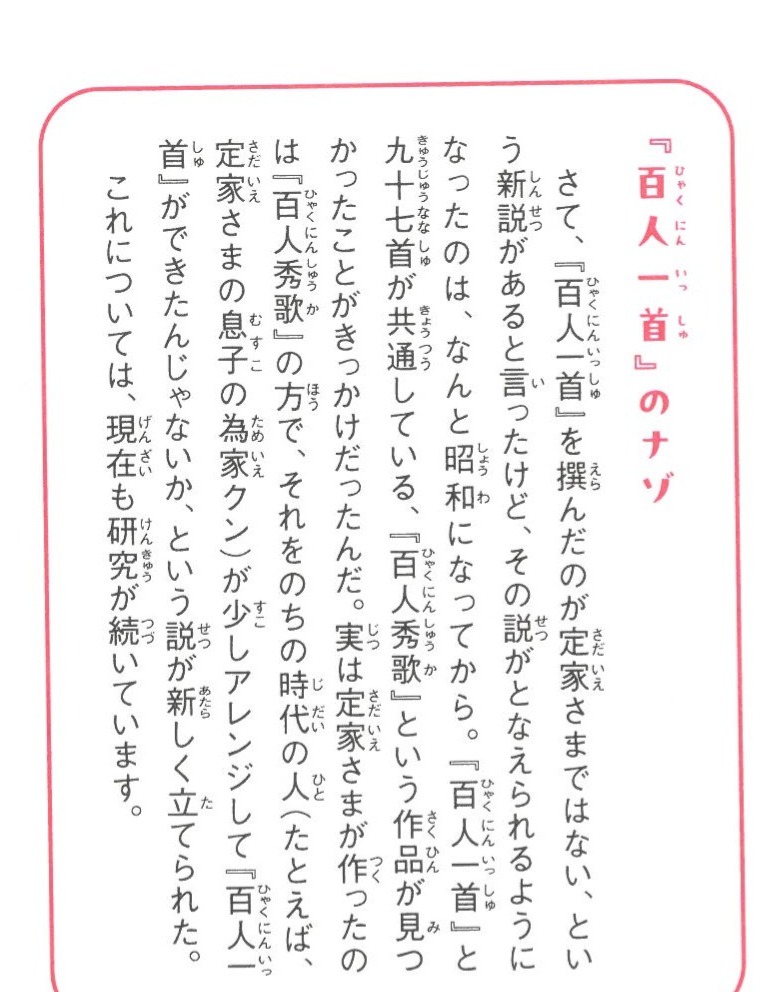 『百人一首』のナゾ
さて、『百人一首』を撰んだのが定家さまではない、とい
う新説があると言ったけど、その説がとなえられるように
なったのは、なんと昭和になってから。『百人一首』と
九十七首が共通している、『百人秀歌』という作品が見つ
かったことがきっかけだったんだ。実は定家さまが作ったの
は『百人秀歌』の方で、それをのちの時代の人(たとえば、
定家さまの息子の為家クン)が少しアレンジして『百人一
首』ができたんじゃないか、という説が新しく立てられた。
これについては、現在も研究が続いています。